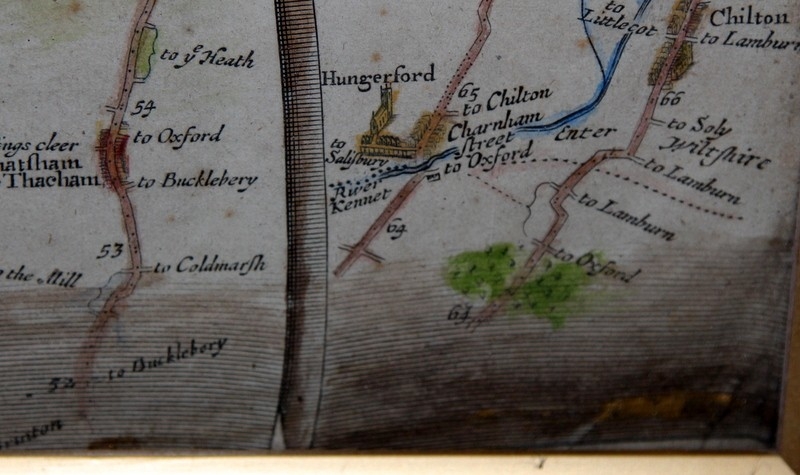 to yͤ Heath
54
to Oxford
ings cleer
Thacham
to Bucklebery
53
to Coldmarsh
the Mill
to Bucklebory
52
Hungerford
to
Salisbury
65
to Chilton
Charnham
street
to Oxford
River
Kennet
64
to
Littlecot
Chilton
to Lamburn
66
to Soly
Enter
Wiltshire
to Lamburn
to Lamburn
to Oxford
64